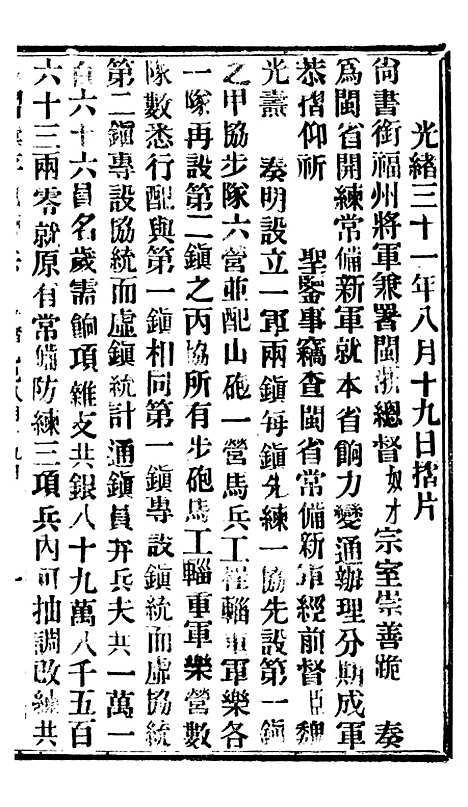 光緒三十一年八月十九日摺片
尙書銜福州將軍兼署閩浙總督奴才宗室崇善跪 奏
爲閩省開練常備新軍就本省餉力變通辦理分期成軍
恭摺仰祈 聖鑒事竊查閩省常備新軍經前督臣魏
光燾 奏明設立一軍兩鎭每鎭先練一協先設第一鎭
之甲協步隊六營並配山砲一營馬兵工程輜重軍樂各
一隊再設第二鎭之丙協所有步砲馬工輜重軍樂營數
隊數悉行配與第一鎭相同第一鎭專設鎭統而虛協統
第二鎭專設協統而虛鎭統計通鎭員弁兵夫共一萬一
百六十六員名歲需餉項雜支共銀八十九萬八千五百
六十三兩零就原有常備防練三項兵內可抽調改練共